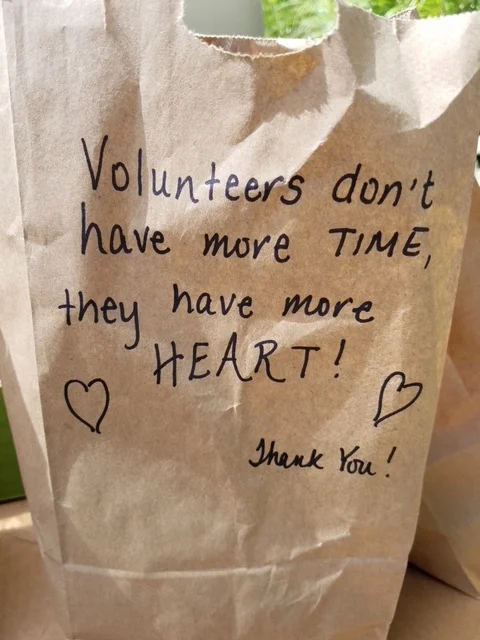 Volunteers don't
have more TIME,
they have more
HEART!
Thank You!